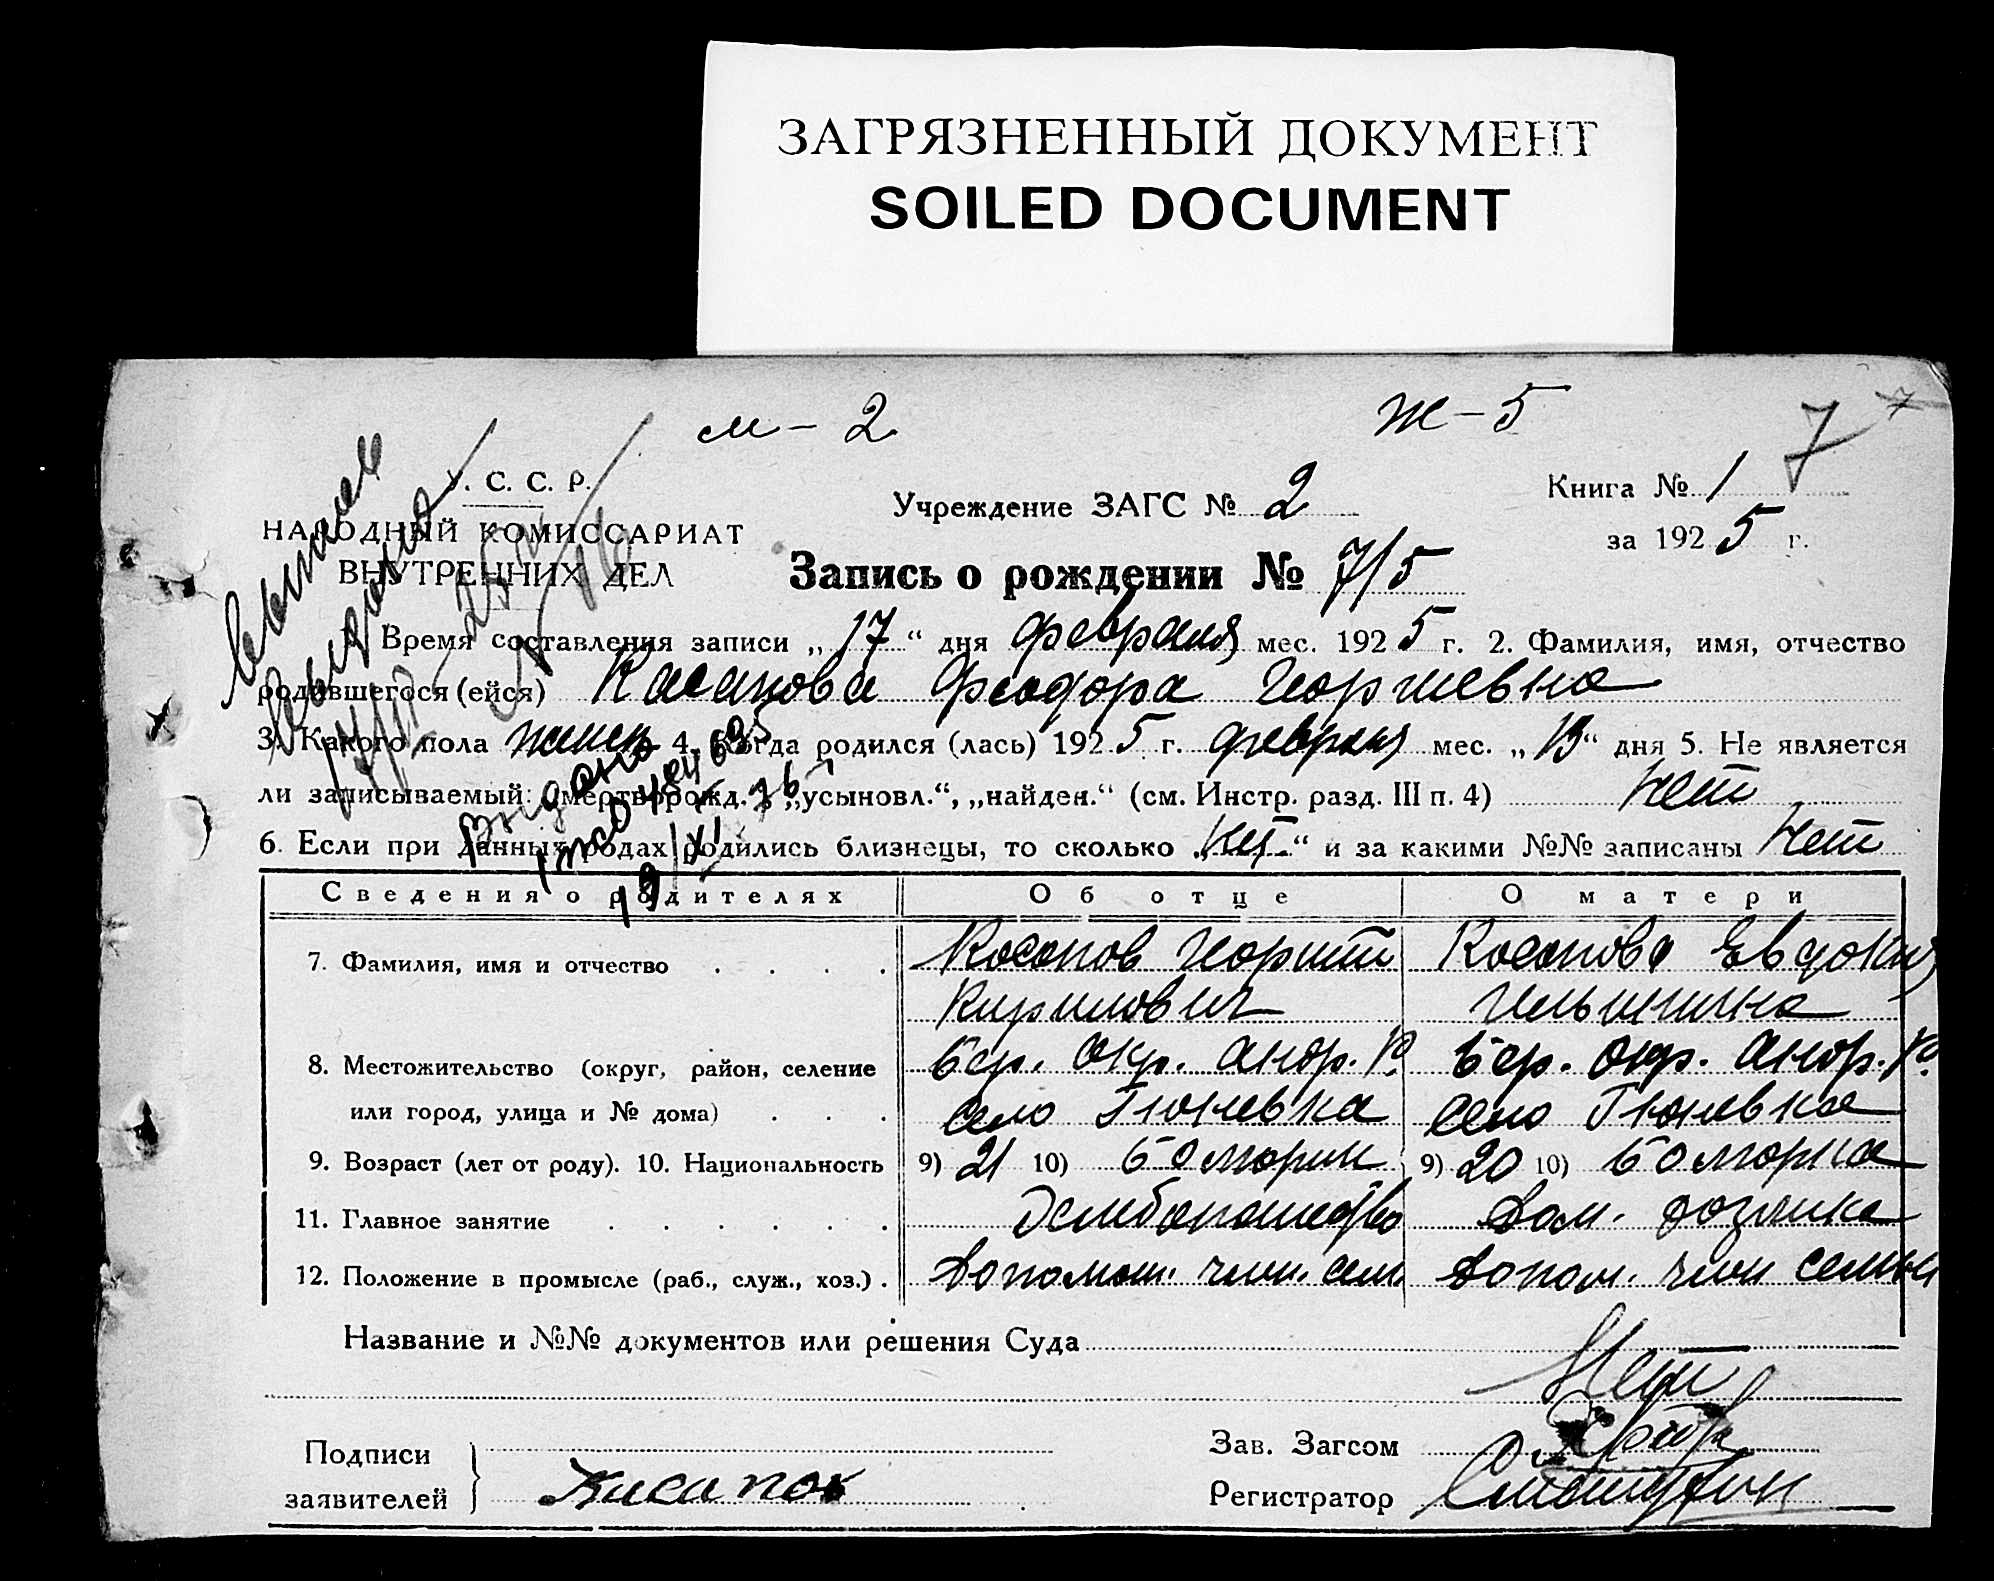 ЗАГРЯЗНЕННЫЙ ДОКУМЕНТ
SOILED DOCUMENT
м - 2
Ж - 5
7
7
У. С. С. Р.
НАРОДНЫЙ КОМИССАРИАТ
ВНУТРЕННИХ ДЕЛ
Учреждение ЗАГС № 2
Книга № 1
за 1925 г.
Запись о рождении № 7/5
1. Время составления записи „17“ дня февраля мес. 1925 г. 2. Фамилия, имя, отчество
родившегося (ейся) Касапова Феодора Георгиевна
3. Какого пола женск 4. Когда родился (лась) 1925 г. февраля мес. „13“ дня 5. Не является
ли записываемый: „мертворожд.“, „усыновл.“, „найден.“ (см. Инстр. разд. III п. 4) Нет
6. Если при данных родах родились близнецы, то сколько „нет“ и за какими №№ записаны Нет
Выдано
Сведения о родителях Об отце О матери
7. Фамилия, имя и отчество Косапов Георгий Косапова Евдокия
Кирилович Ильинична
8. Местожительство (округ, район, селение Бер. Окр. Андр. Р. Бер. Окр. Андр. Р.
или город, улица и № дома) село Гюневка село Гюневка
9. Возраст (лет от роду). 10. Национальность 9) 21 10) Болгарин 9) 20 10) Болгарка
11. Главное занятие Дом. хозяйка
12. Положение в промысле (раб., служ., хоз.) Допомощ. член. сем. Допом. член семьи
Название и №№ документов или решения Суда
Нет
Подписи
заявителей Касапов
Зав. Загсом
Регистратор